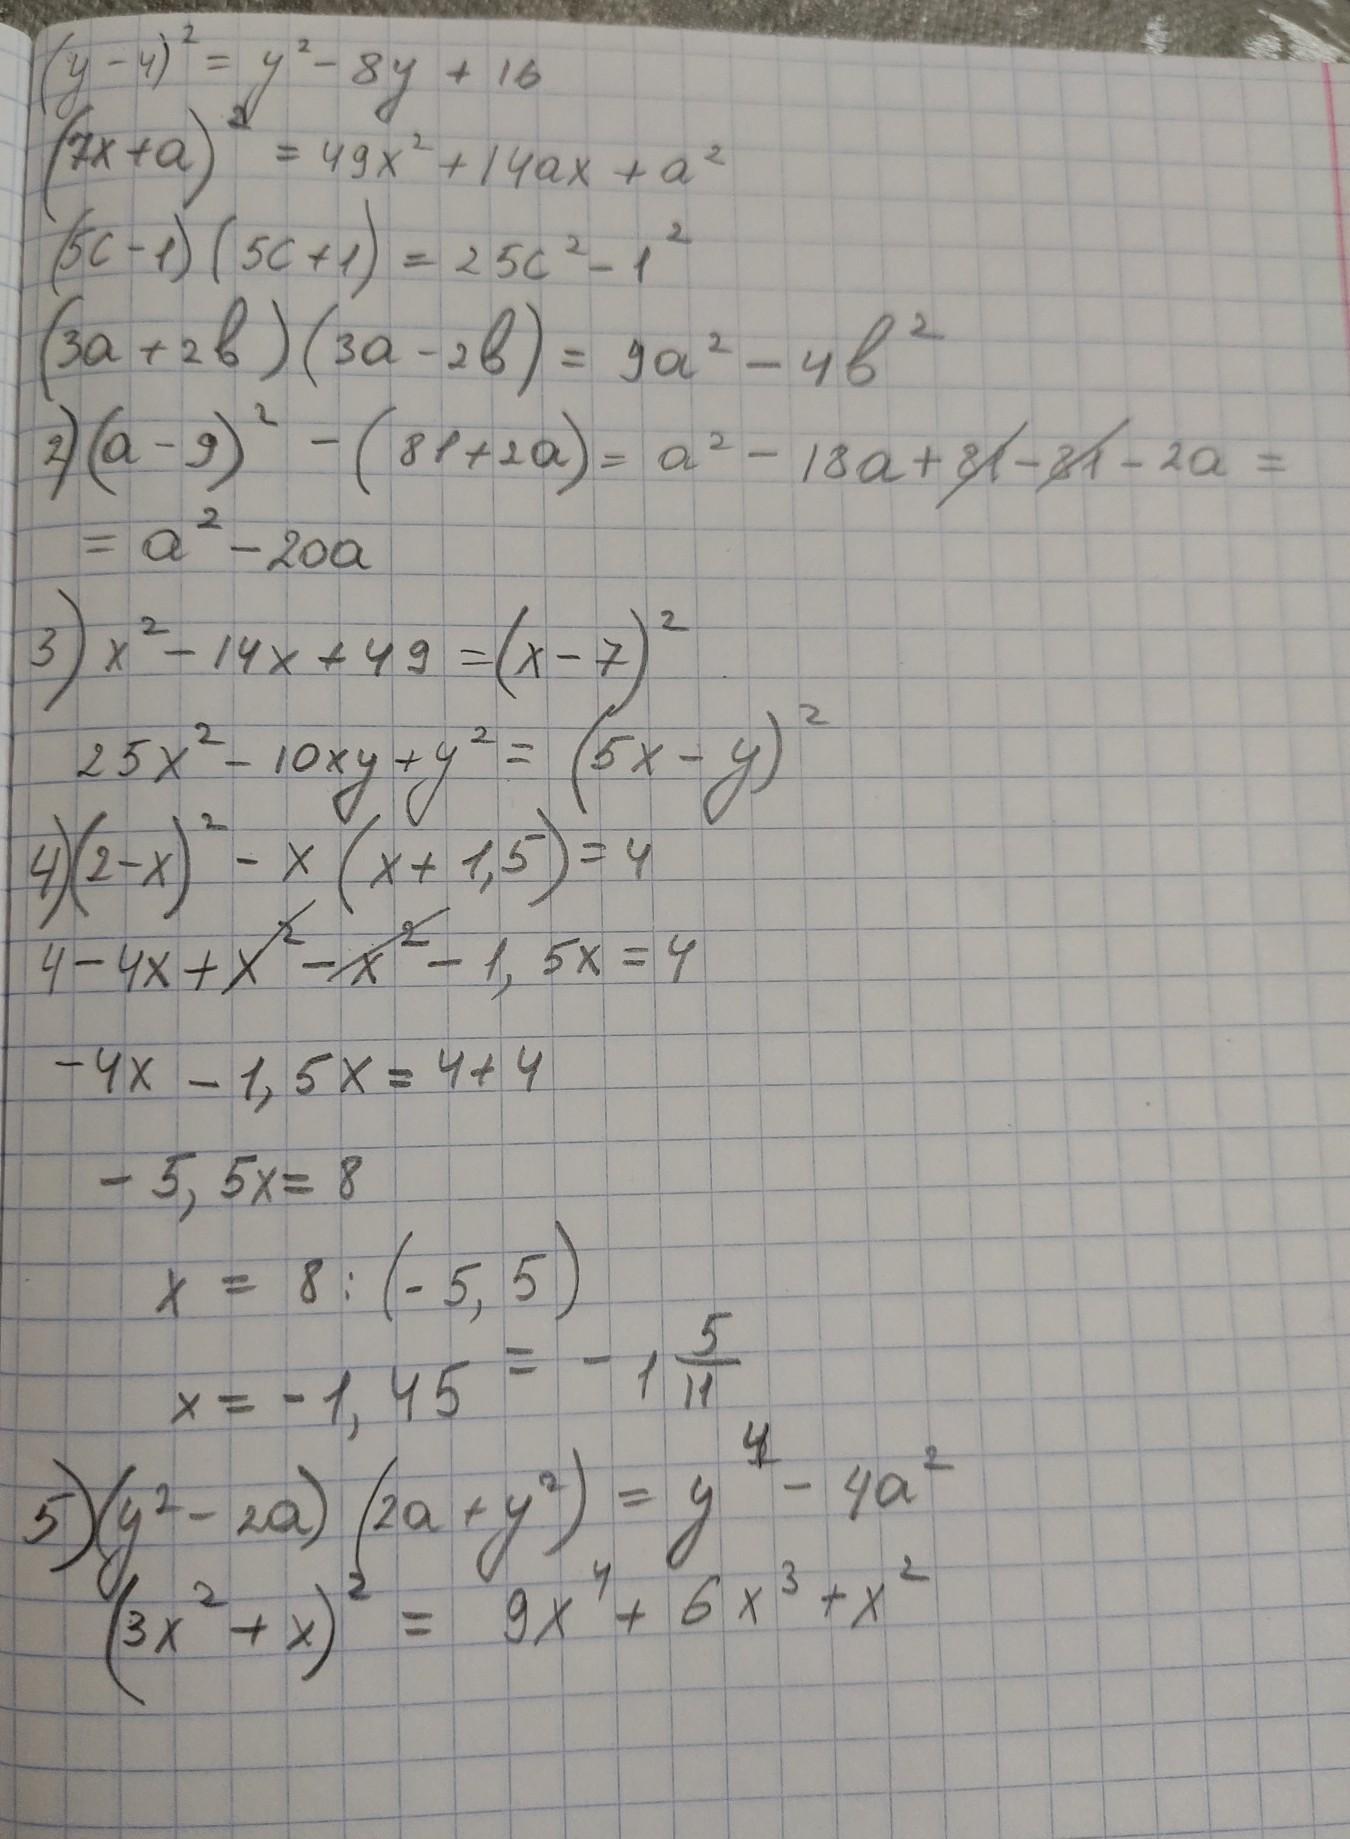 (y-4)² = y² - 8y + 16
(7x+a)² = 49x² + 14ax + a²
(5c-1)(5c+1) = 25c² - 1²
(3a+2b)(3a-2b) = 9a² - 4b²
2) (a-9)² - (81+2a) = a² - 18a + 81 - 81 - 2a =
= a² - 20a
3) x² - 14x + 49 = (x-7)²
25x² - 10xy + y² = (5x-y)²
4) (2-x)² - x(x+1,5) = 4
4 - 4x + x² - x² - 1,5x = 4
-4x - 1,5x = 4+4
-5,5x = 8
x = 8 : (-5,5)
x = -1,45 = -1 5/11
5) (y²-2a)(2a+y²) = y⁴ - 4a²
(3x²+x)² = 9x⁴ + 6x³ + x²